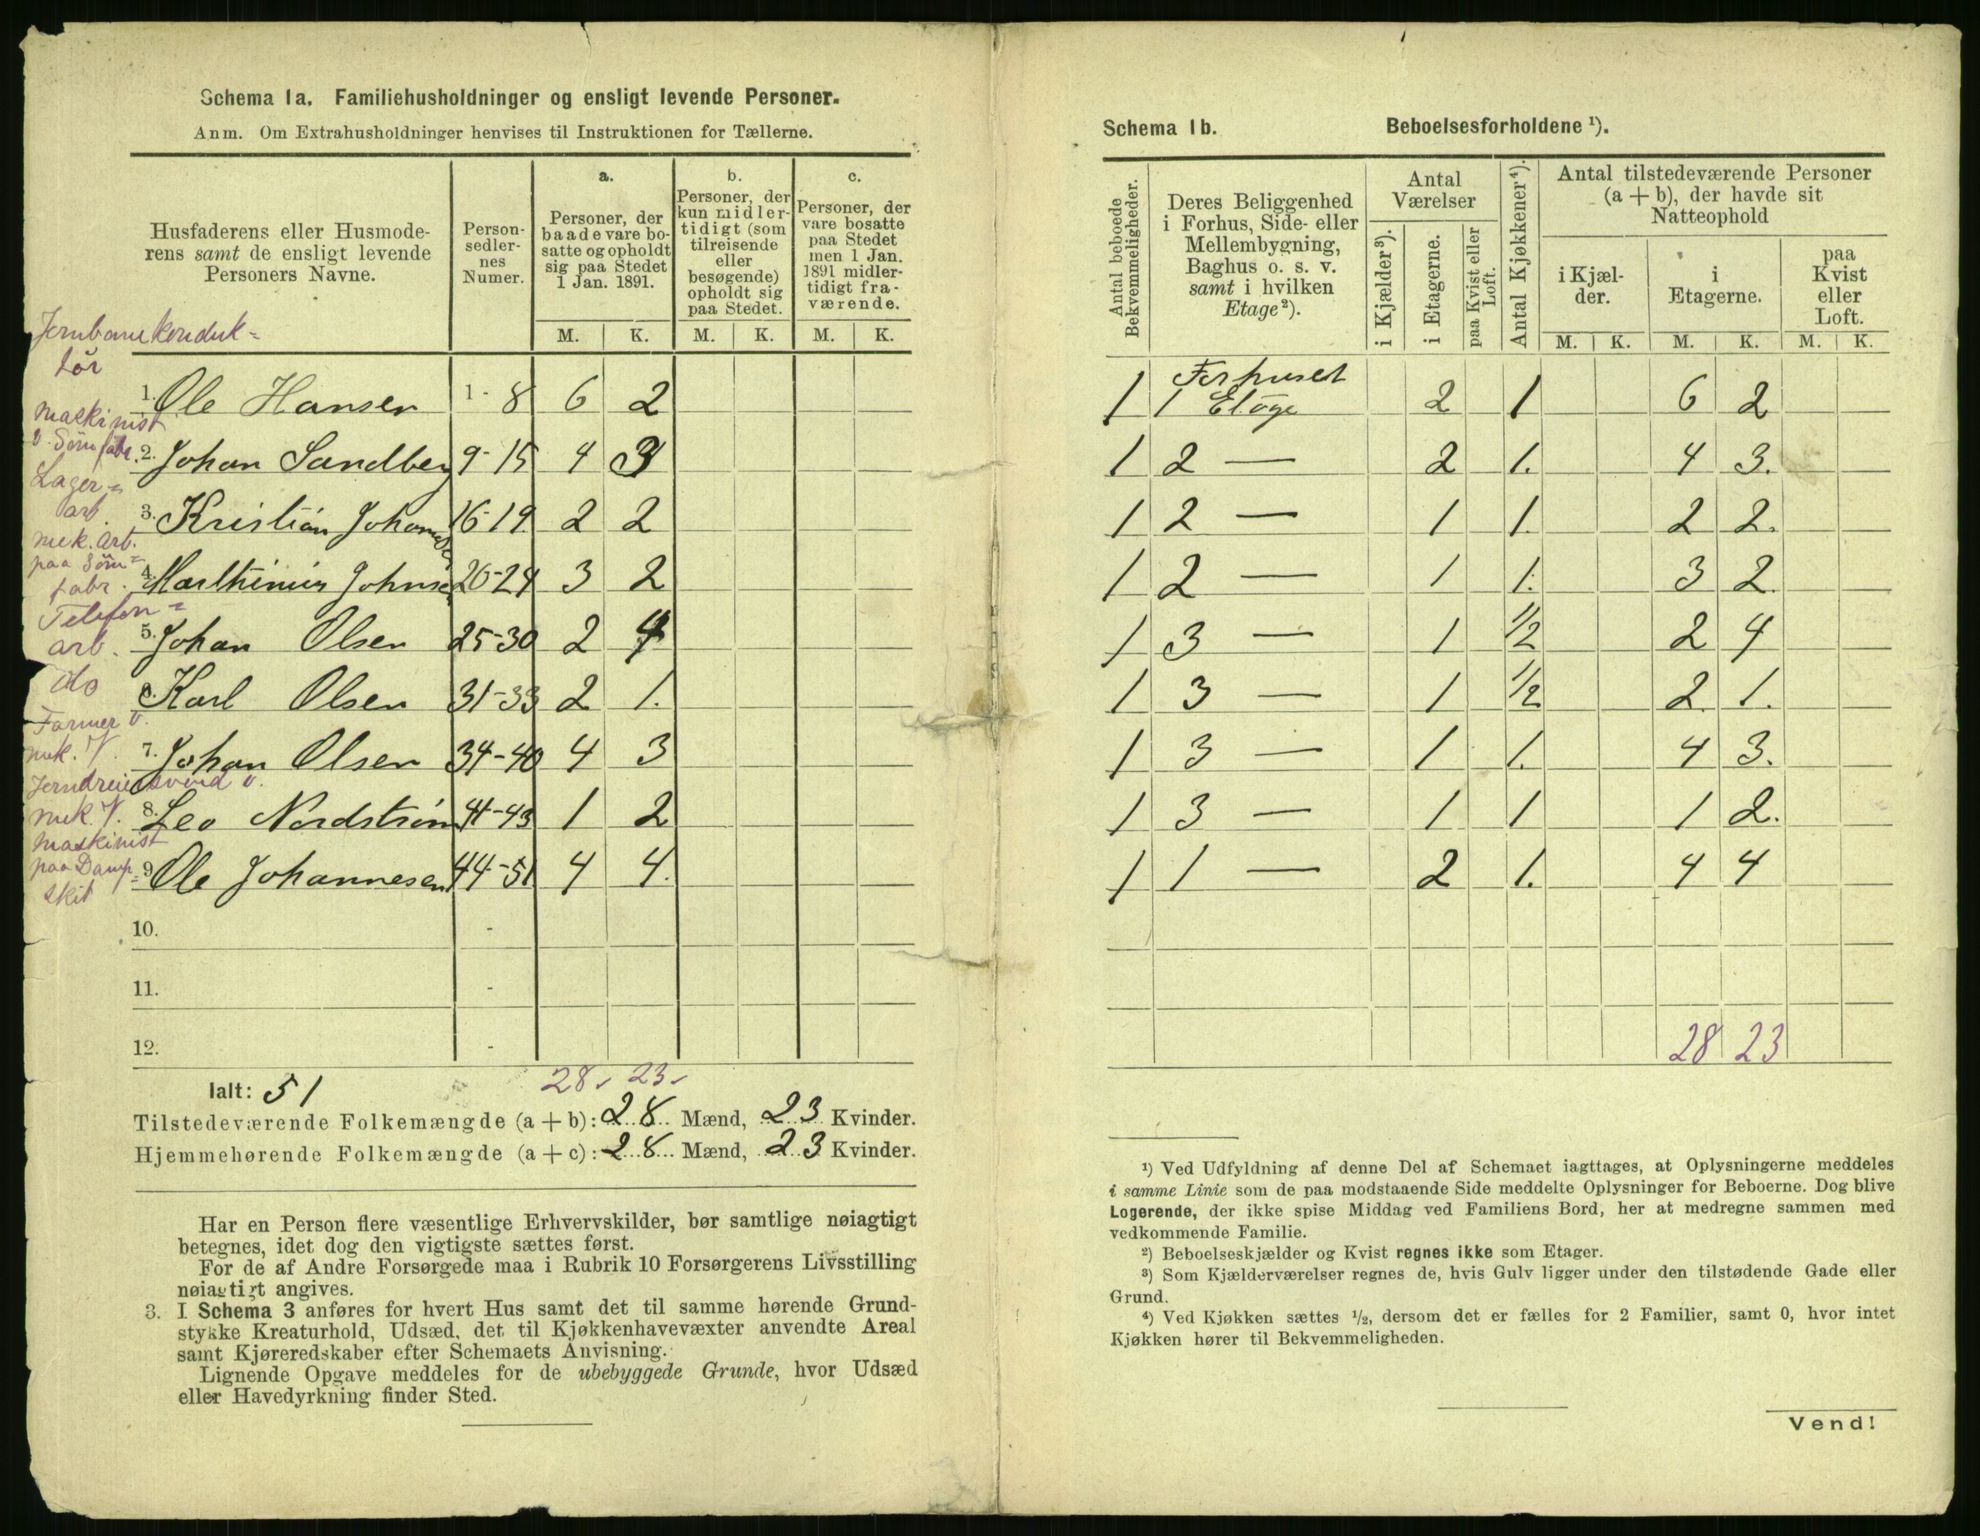 Schema 1a. Familiehusholdninger og ensligt levende Personer.
Anm. Om Extrahusholdninger henvises til Instruktionen for Tællerne.
Husfaderens eller Husmode-
rens samt de ensligt levende
Personers Navne.
Person-
sedler-
nes
Numer.
a.
Personer, der
baade vare bo-
satte og opholdt
sig paa Stedet
1 Jan. 1891.
b.
Personer, der
kun midler-
tidigt (som
tilreisende
eller
besøgende)
opholdt sig
paa Stedet.
c.
Personer, der
vare bosatte
paa Stedet
men 1 Jan.
1891 midler-
tidigt fra-
værende.
M. K. M. K. M. K.
Jernbanekonduk=
tör
1. Ole Hansen 1 - 8 6 2
Maskinist
v. Sömfabr.
2. Johan Sandberg 9-15 4 3
Lager=
arb.
3. Kristian Johansen 16-19 2 2
mek. Arb.
paa Söm=
fabr.
4. Marthinius Johnsen 20-24 3 2
Telefon=
arb.
5. Johan Olsen 25-30 2 4
do
6. Karl Olsen 31-33 2 1.
Former v.
mek. V.
7. Johan Olsen 34-40 4 3
Jerndreiersvend v.
mek. V.
8. Leo Nordström 41-43 1 2
Maskinist
paa Damp=
skib
9. Ole Johannesen 44-51 4 4.
10. -
11. -
12. -
28. 23.
Ialt: 51
Tilstedeværende Folkemængde (a + b): 28 Mænd, 23 Kvinder.
Hjemmehørende Folkemængde (a + c): 28 Mænd, 23 Kvinder.
Har en Person flere væsentlige Erhvervskilder, bør samtlige nøiagtigt
betegnes, idet dog den vigtigste sættes først.
For de af Andre Forsørgede maa i Rubrik 10 Forsørgerens Livsstilling
nøiagtigt angives.
3. I Schema 3 anføres for hvert Hus samt det til samme hørende Grund-
stykke Kreaturhold, Udsæd, det til Kjøkkenhavevæxter anvendte Areal
samt Kjøreredskaber efter Schemaets Anvisning.
Lignende Opgave meddeles for de ubebyggede Grunde, hvor Udsæd
eller Havedyrkning finder Sted.
Schema 1b. Beboelsesforholdene ¹).
Antal beboede
Bekvemmeligheder.
Deres Beliggenhed
i Forhus, Side- eller
Mellembygning,
Baghus o. s. v.
samt i hvilken
Etage ²).
Antal
Værelser
i Kjælder ³).
i Etagerne.
paa Kvist eller
Loft.
Antal Kjøkkener ⁴).
Antal tilstedeværende Personer
(a + b), der havde sit
Natteophold
i Kjæl-
der.
i
Etagerne.
paa
Kvist
eller
Loft.
M. K. M. K. M. K.
Forhuset
1 1 Etage 2 1 6 2
1 2 — 2 1. 4 3.
1 2 — 1 1. 2 2.
1 2 — 1 1. 3 2.
1 3 — 1 1/2 2 4
1 3 — 1 1/2 2. 1.
1 3 — 1 1. 4 3.
1 3 — 1 1 1 2.
1 1 — 2 1. 4 4
28 23
¹) Ved Udfyldning af denne Del af Schemaet iagttages, at Oplysningerne meddeles
i samme Linie som de paa modstaaende Side meddelte Oplysninger for Beboerne. Dog blive
Logerende, der ikke spise Middag ved Familiens Bord, her at medregne sammen med
vedkommende Familie.
²) Beboelseskjælder og Kvist regnes ikke som Etager.
³) Som Kjælderværelser regnes de, hvis Gulv ligger under den tilstødende Gade eller
Grund.
⁴) Ved Kjøkken sættes ¹/₂, dersom det er fælles for 2 Familier, samt 0, hvor intet
Kjøkken hører til Bekvemmeligheden.
Vend!